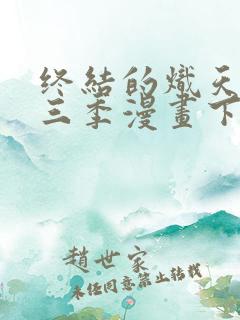 终结的熾天
三季漫畫下
趙世家
未经同意禁止转载